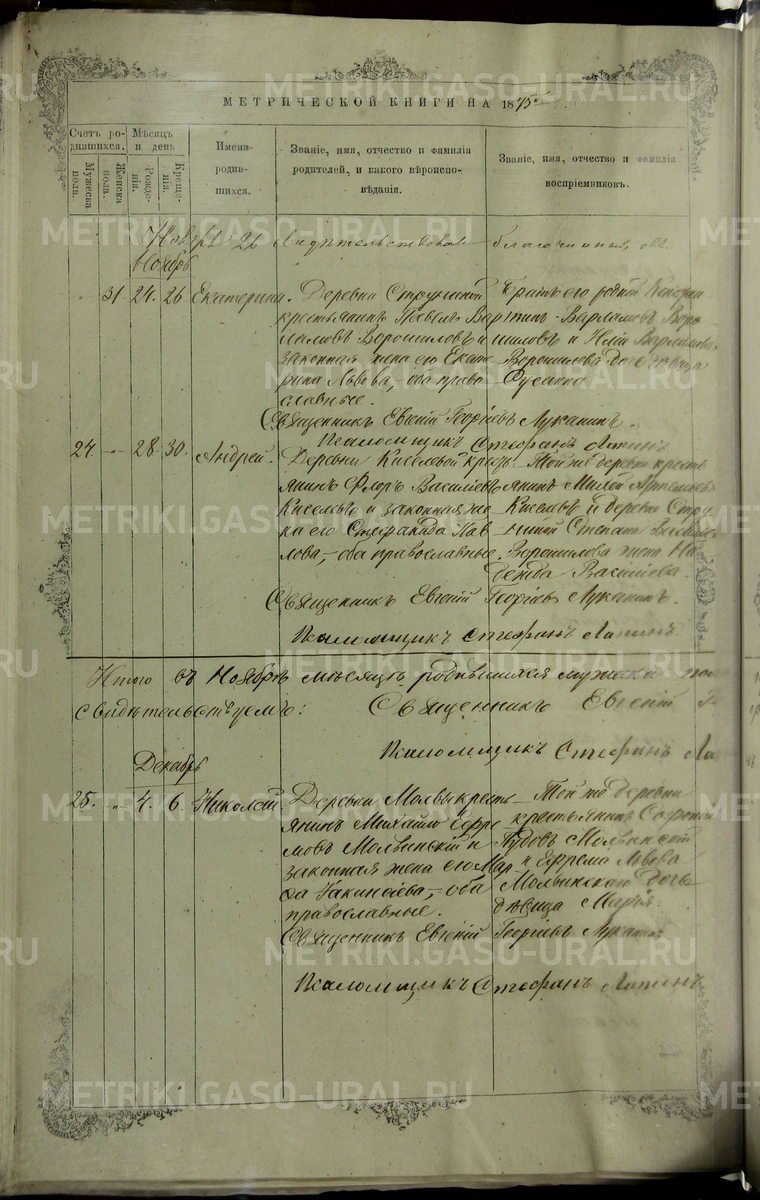 МЕТРИЧЕСКОЙ КНИГИ НА 1875
Счетъ родившихся.
Мужеска пола.
Женска пола.
Мѣсяцъ и день
Рожденія.
Крещенія.
Имена родившихся.
Званіе, имя, отчество и фамилія родителей, и какого вѣроисповѣданія.
Званіе, имя, отчество и фамилія воспріемниковъ.
26 свидѣтельствовалъ благочинный
Ноябрь
31. 24. 26 Екатерина. Деревни крестьянинъ Павелъ Варламовъ Ворошиловъ и законная жена его Екатерина Львова, оба православные.
Братъ его родной Варламовъ Ворошиловъ и Варламова Ворошилова дочь
Священникъ Евгеній Георгіевъ Луканинъ.
Псаломщикъ Стефанъ Лапинъ
24. „ 28. 30. Андрей. Деревни Киселевой крестьянинъ Флоръ Васильевъ Киселевъ и законная жена его Стефанида Павлова, – оба православные.
Той же деревни крестьянинъ Киселевъ и деревни Степана Ворошилова жена Надежда Васильева.
Священникъ Евгеній Георгіевъ Луканинъ.
Псаломщикъ Стефанъ Лапинъ
Итого въ Ноябрѣ мѣсяцѣ родившихся мужеска
свидѣтельствуемъ: Священникъ Евгеній
Псаломщикъ Стефанъ
Декабрь
25. „ 4. 6. Николай. Деревни Молвы крестьянинъ Михаилъ Ефремовъ Молвинскій и законная жена его оба православные.
Той же деревни крестьянинъ Молвинскій и Ефрема Львова Молвинскаго дочь дѣвица Марія.
Священникъ Евгеній Георгіевъ Луканинъ
Псаломщикъ Стефанъ Лапинъ
METRIKI.GASO-URAL.RU